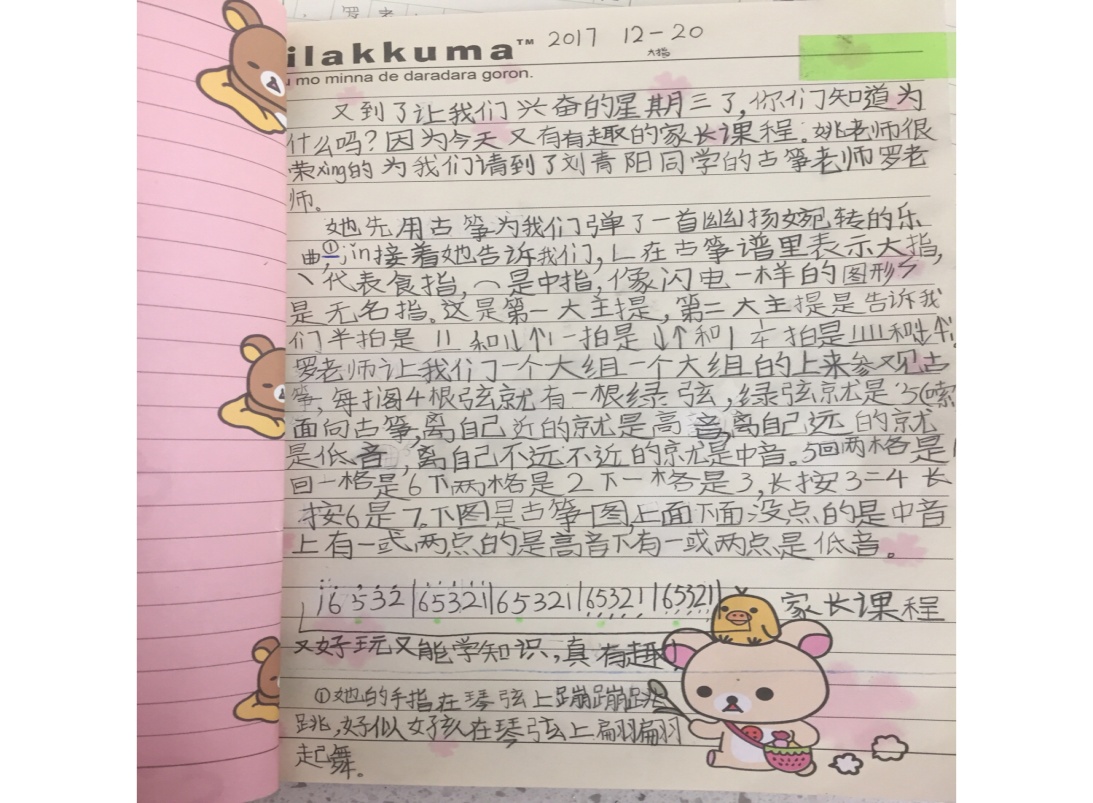 ilakkuma™ 2017 12-20
大指
mo minna de daradara goron.
又到了让我们兴奋的星期三了,你们知道为
什么吗?因为今天又有有趣的家长课程。姚老师很
荣xìng的为我们请到了刘青阳同学的古筝老师罗老
师。
她先用古筝为我们弹了一首幽扬婉转的乐
曲,①jǐn接着她告诉我们,乚在古筝谱里表示大指,
丶代表食指,⌒是中指,像闪电一样的图形
是无名指。这是第一大主提,第二大主提是告诉我
们半拍是 和 一拍是↓↑和 拍是 和
罗老师让我们一个大组一个大组的上来参观古
筝,每隔4根弦就有一根绿弦,绿弦就是5(嗦
面向古筝,离自己近的就是高音,离自己远的就
是低音,离自己不远不近的就是中音。5回两格是1
回一格是6下两格是2下一格是3,长按3=4长
按6是7。下图是古筝图,上面下面没点的是中音
上有一或两点的是高音下有一或两点是低音。
16532|65321|65321|65321|65321| 家长课程
又好玩又能学知识,真有趣
①她的手指在琴弦上蹦蹦跳
跳,好似女孩在琴弦上翩翩
起舞。